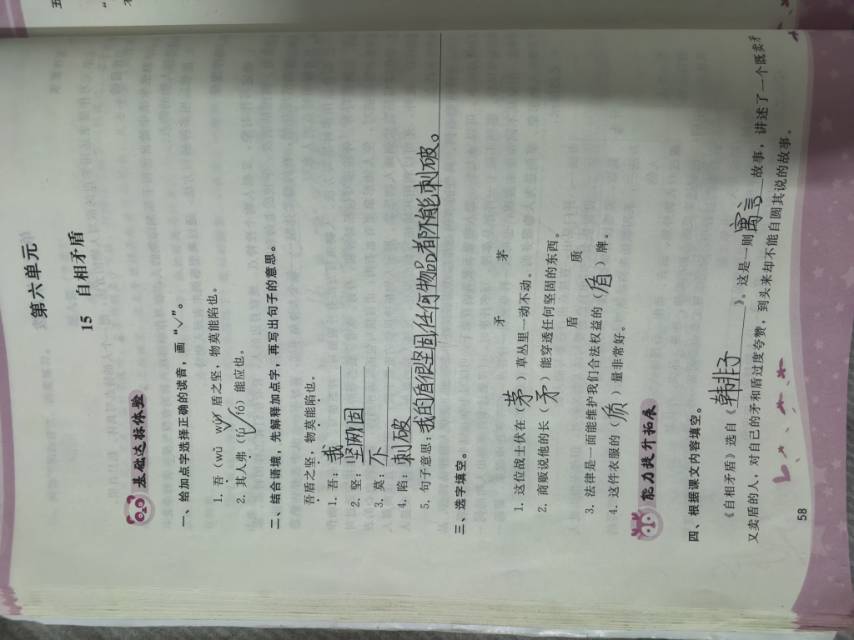 第六单元
15 自相矛盾
基础达标体验
一、给加点字选择正确的读音，画“√”。
1. 吾（wú wǔ√）盾之坚，物莫能陷也。
2. 其人弗（fú√ fó）能应也。
二、结合语境，先解释加点字，再写出句子的意思。
吾盾之坚，物莫能陷也。
1. 吾：我
2. 坚：坚固
3. 莫：不
4. 陷：刺破
5. 句子意思：我的盾很坚固，任何物品都不能刺破。
三、选字填空。
矛 茅
1. 这位战士伏在（茅）草丛里一动不动。
2. 商贩说他的长（矛）能穿透任何坚固的东西。
盾 质
3. 法律是一面能维护我们合法权益的（盾）牌。
4. 这件衣服的（质）量非常好。
能力提升拓展
四、根据课文内容填空。
《自相矛盾》选自《韩非子》。这是一则寓言故事，讲述了一个既卖矛
又卖盾的人，对自己的矛和盾过度夸赞，到头来却不能自圆其说的故事。
58